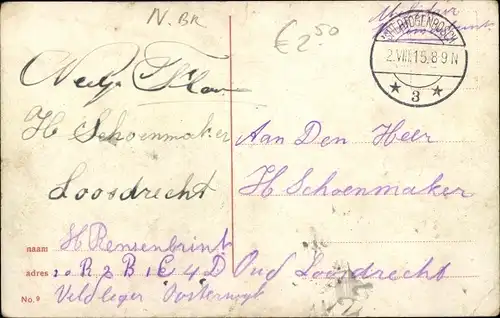 N. BR
€ 2.50
Militair
'S HERTOGENBOSCH
2.VIII.15.8-9N
★ 3 ★
H Schoenmaker
Loosdrecht
Aan Den Heer
H Schoenmaker
Oud Loosdrecht
naam H Rensenbrink
adres : 2 R 2 B 1 C 4 D
No. 9 Veldleger Oosterwyk